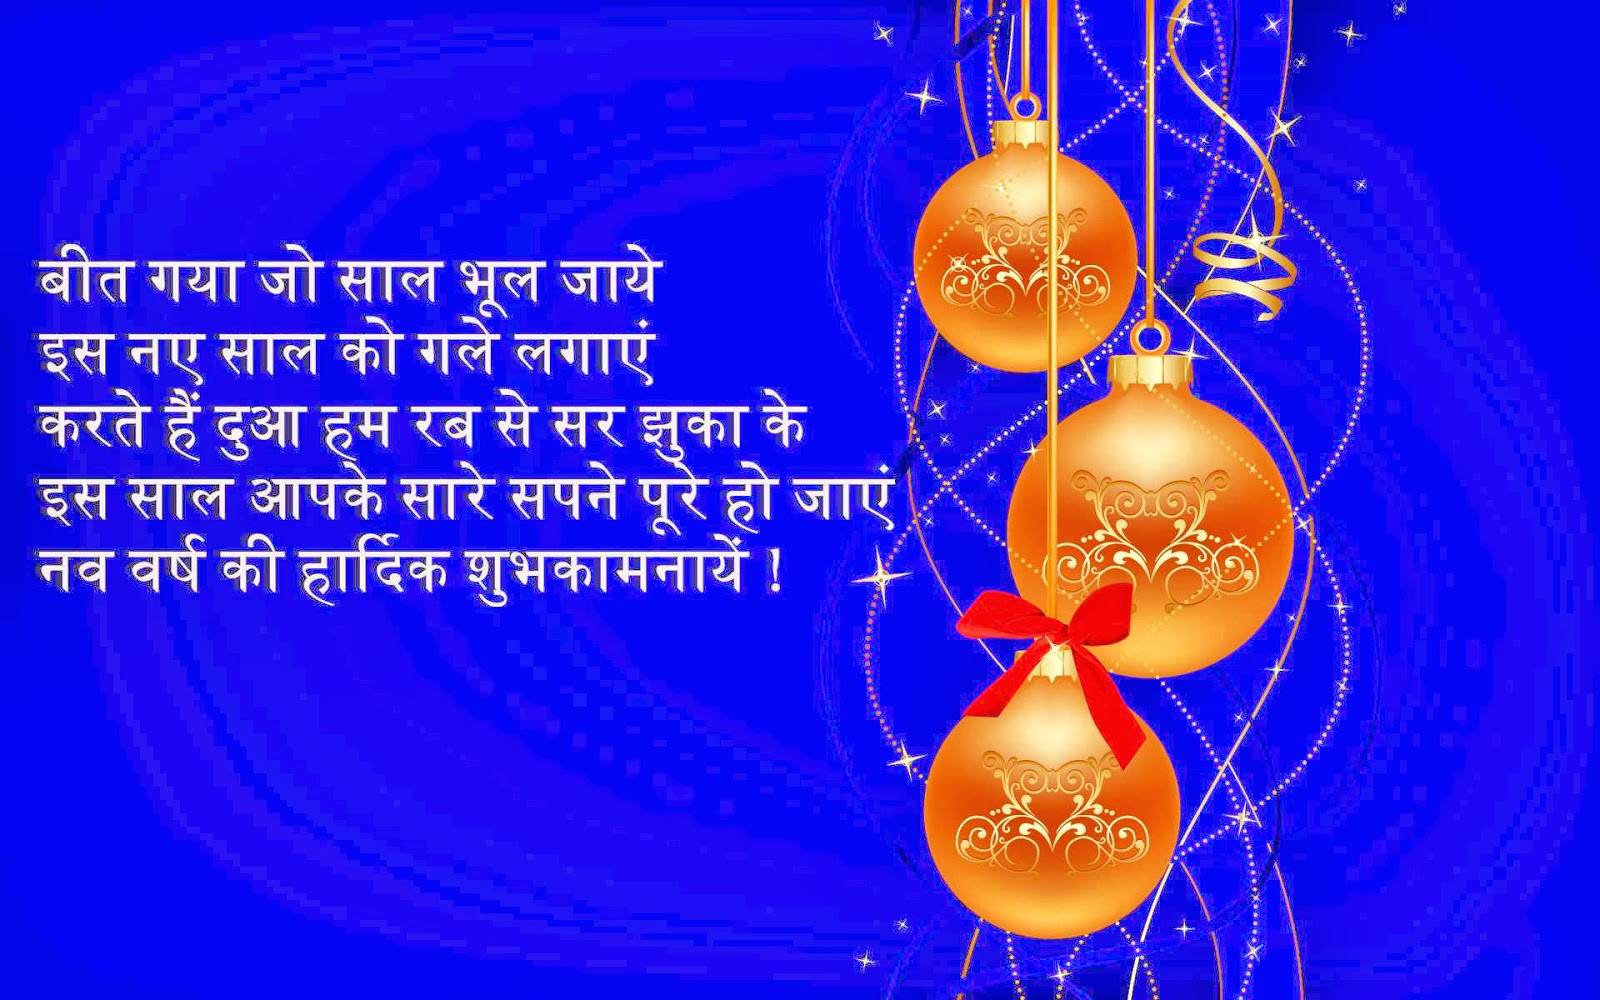 बीत गया जो साल भूल जाये
इस नए साल को गले लगाएं
करते हैं दुआ हम रब से सर झुका के
इस साल आपके सारे सपने पूरे हो जाएं
नव वर्ष की हार्दिक शुभकामनायें !